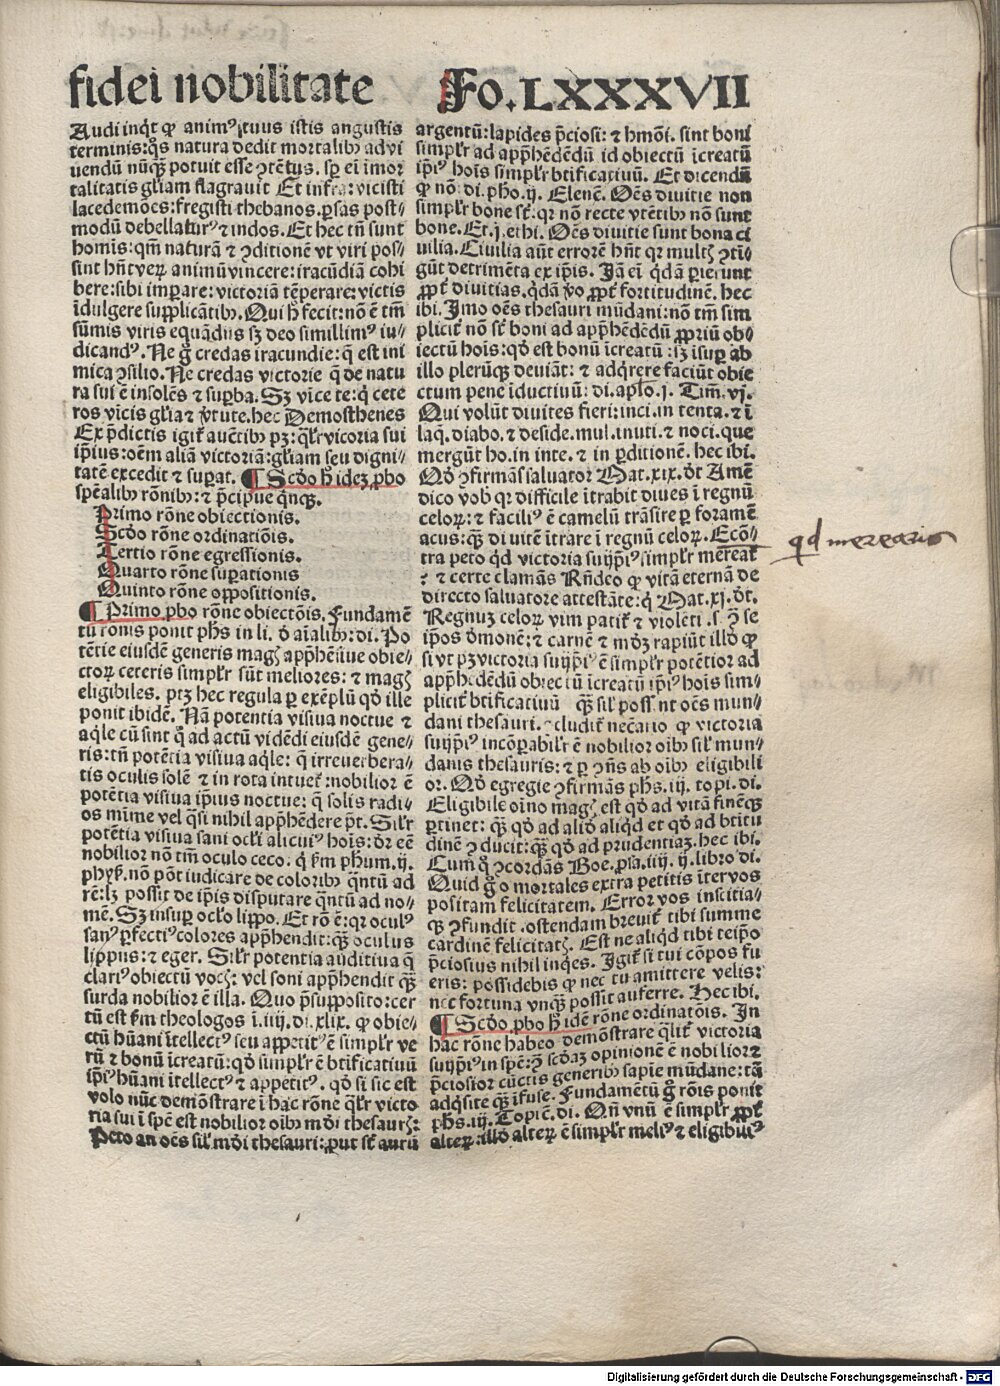 fidei nobilitate
Fo. LXXXVII
Audi inqͥt ꝙ animꝰ tuus istis angustis
terminis: q̄s natura dedit mortalibꝫ ad vi
uendū nūqꝫ potuit esse ꝯtētus. sꝑ ei īmor
talitatis gl̄iam flagrauit Et infra: vicisti
lacedemōes: fregisti thebanos. ꝑsas post⸗
modū debellaturꝰ ⁊ indos. Et hec tn̄ sunt
homis: qm̄ naturā ⁊ ꝯditionē vt viri pos⸗
sint hn̄t veꝝ animū vincere: iracūdiā cohi
bere: sibi imꝑare: victoriā tēperare: victis
īdulgere supplicātibꝫ. Qui h̄ fecit: nō ē tm̄
sūmis viris equādus sꝫ deo simillimꝰ iu⸗
dicandꝰ. Ne g̊ credas iracundie: q̄ est ini
mica ꝯsilio. Ne credas victorie q̄ de natu
ra sui ē insolēs ⁊ suꝑba. Sꝫ vice te: q̇ cete
ros vīcis gl̄ia ⁊ v̓tute. hec Demosthenes
Ex p̄dictis igit̄ auētibꝫ pꝫ: ql̄r vicoria sui
ip̄ius: oēm aliā victoriā: gl̄iam seu digni⸗
tatē excedit ⁊ suꝑat. ¶ Scd̄o h̄ idez ꝓbo
spēalibꝫ rōnibꝫ: ⁊ p̄cipue qͥnqꝫ.
Primo rōne obiectionis.
Scd̄o rōne ordinatiōis.
Tertio rōne egressionis.
Quarto rōne suꝑationis
Quinto rōne oppositionis.
¶ Primo ꝓbo rōne obiectōis. Fundamē
tū rōnis ponit ph̄s in li. d̓ aīalibꝫ: di. Po
tētie eiusdē generis magꝭ app̄hēsiue obie⸗
ctoꝝ ceteris simpl̄r sūt meliores: ⁊ magꝭ
eligibiles. ptꝫ hec regula ꝑ exēplū qd̓ ille
ponit ibidē. Nā potentia visiua noctue ⁊
aq̇le cū sint q̄ ad actū vidēdi eiusdē gene⸗
ris: tn̄ potētia visiua aq̇le: q̄ irreuerbera⸗
tis oculis solē ⁊ in rota intuet̄: nobilior ē
potētia visiua ip̄ius noctue: q̄ solis radi⸗
os mīme vel qͣsi nihil app̄hēdere pōt. Sil̄r
potētia visiua sani ocl̓i alicuiꝰ hoīs: dr̄ eē
nobilior nō tm̄ oculo ceco. q̄ ẜm ph̄um. ij.
phyẜ. nō pōt iudicare de coloribꝫ qͣntū ad
rē: lꝫ possit de ip̄is disputare qͣntū ad no⸗
mē. Sꝫ insuꝑ ocl̓o lippo. Et rō ē: qꝛ oculꝰ
sanꝰ ꝑfectiꝰ colores app̄hendit: qꝫ̄ oculus
lippus: ⁊ eger. Sil̄r potentia auditiua q̄
clariꝰ obiectū vocꝭ: vel soni app̄hendit qꝫ̄
surda nobilior ē illa. Quo p̄supposito: cer
tū est ẜm theologos ī. iiij. di. xlix. ꝙ obie⸗
ctū hūani ītellectꝰ seu appetitꝰ ē simpl̄r ve
rū ⁊ bonū īcreatū: qd̓ simpl̄r ē btīficatiuū
ip̄iꝰ hūani ītellectꝰ ⁊ appetitꝰ. qd̓ si sic est
volo nūc demōstrare ī hac rōne ql̄r victo
ria sui ī spē est nobilior oībꝫ mūdi thesauꝝ:
Peto an oēs sil̄ mūdi thesauri: ꝓut sūt aurū
argentū: lapides p̄ciosi: ⁊ hmōi. sint boni
simpl̄r ad app̄hēdēdū id obiectū īcreatū
ip̄iꝰ hoīs simpl̄r btīficatiuū. Et dicendū
ꝙ nō: di. pho. ij. Elenē. Oēs diuitie non
simpl̄r bone sūt: qꝛ nō recte vtētibꝫ nō sunt
bone. Et. j. ethi. Oēs diuitie sunt bona ci
uilia. Ciuilia aūt errorē hn̄t qꝛ multꝭ ꝯtī⸗
gūt detrimēta ex ip̄is. Jā ei q̇dā ꝑierunt
ꝓpt̄ diuitias. q̇dā v̓o ꝓpt̄ fortitudinē. hec
ibi. Jmo oēs thesauri mūdani: nō tm̄ sim
plicit̄ nō sūt boni ad app̄hēdēdū ꝓpriū ob⸗
iectū hoīs: qd̓ est bonū īcreatū: sꝫ īsuꝑ ab
illo plerūqꝫ deuiāt: ⁊ adq̇rere faciūt obie
ctum pene īductiuū: di. apl̓o. j. Tim̄. vj.
Qui volūt diuites fieri: inci. in tenta. ⁊ ī
laq̄. diabo. ⁊ deside. mul. inuti. ⁊ noci. que
mergūt ho. in inte. ⁊ in ꝑditionē. hec ibi.
Qd̓ ꝯfirmās saluator Mat. xix. dt̄ Amē
dico vob̓ qꝛ difficile ītrabit diues ī regnū
celoꝝ: ⁊ faciliꝰ ē camelū trāsire ꝑ foramē
acus: qꝫ̄ diuitē ītrare ī regnū celoꝝ. Ecō⸗
tra peto q̄d victoria suijp̄iꝰ simpl̄r mereat̄
: ⁊ certe clamās Rn̄deo ꝙ vitā eternā de
directo saluatore attestāte: q̇ Mat. xj. dt̄.
Regnuꝫ celoꝝ vim patit̄ ⁊ violēti. s. ꝯ se
ip̄os d̓monē: ⁊ carnē ⁊ mūdꝫ rapiūt illd̓ ꝙ
si vt pꝫ victoria suijp̄iꝰ ē simpl̄r potētior ad
app̄hēdēdū obiectū īcreatū ip̄iꝰ hoīs sim⸗
plicit̄ btīficatiuū qꝫ̄ sil̄ possint oēs mun⸗
dani thesauri. ꝯcludit̄ nec̄ario ꝙ victoria
suijp̄iꝰ incōꝑabil̄r ē nobilior oībꝫ sil̄ mun⸗
danis thesauris: ⁊ ꝑ ꝯn̄s ab oībꝫ eligibili
or. Qd̓ egregie ꝯfirmās ph̄s. iij. topi. di.
Eligibile oīno magꝭ est qd̓ ad vitā finēqꝫ
ꝑtinet: qꝫ̄ qd̓ ad aliō aliq̇d et qd̓ ad btītu
dinē ꝯducit: qꝫ̄ qd̓ ad prudentiaꝫ. hec ibi.
Cum q̇ ꝯcordās Boe. ꝓsa. iiij. ij. libro di.
Quid g̊ o mortales extra petitis ītervos
positam felicitatem. Error vos inscitia⸗
qꝫ ꝯfundit. ostendam breuit̄ tibi summe
cardinē felicitatꝭ. Est ne aliq̇d tibi teip̄o
p̄ciosius nihil inq̇es. Jgit̄ si tui cōpos fu
eris: possidebis ꝙ nec tu amittere velis:
nec fortuna vnqꝫ̄ possit auferre. Hec ibi.
¶ Scd̄o ꝓbo h̄ idē rōne ordinatōis. Jn
hac rōne habeo demōstrare ql̄it̄ victoria
suijp̄iꝰ in spē: ꝯ scd̄aꝫ opinionē ē nobilior ⁊
p̄ciosior cūctis generibꝫ sapiē mūdane: tā
adq̇site qꝫ̄ īfuse. Fundamētū g̊ rōis ponit
ph̄s. iij. Topic̄. di. Qn̄ vnū ē simpl̄r ꝓpt̄
alteꝝ: illd̓ alteꝝ ē simpl̄r meliꝰ ⁊ eligibiliꝰ
qd mereatur
Digitalisierung gefördert durch die Deutsche Forschungsgemeinschaft - DFG